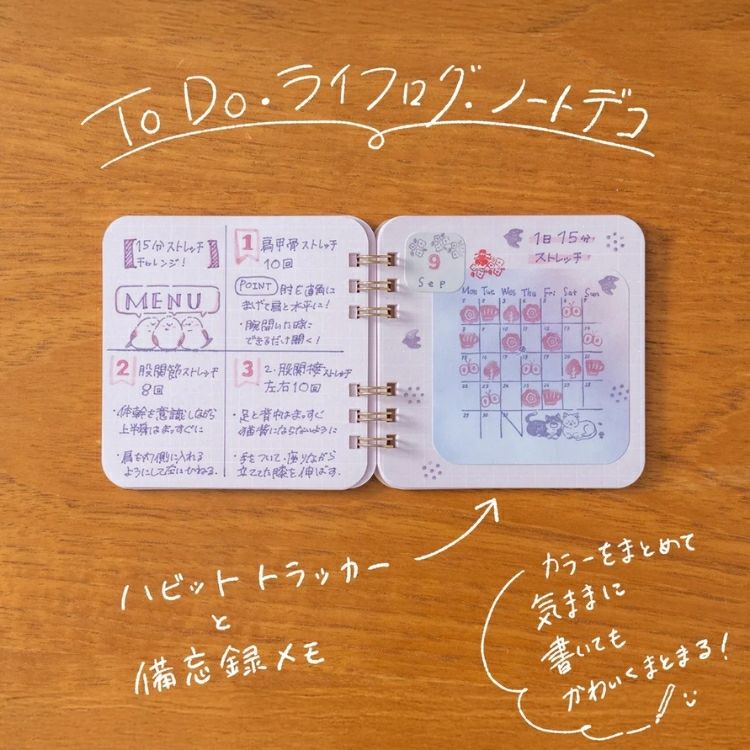 To Do・ライフログ・ノートデコ
【15分ストレッチ
チャレンジ!】
MENU
1 肩甲骨ストレッチ
10回
POINT 肘を直角に
まげて肩と水平に!
・腕開いた時に
できるだけ開く!
2 股関節ストレッチ
8回
・体幹を意識しながら
上半身はまっすぐに
・肩を内側に入れる
ようにして左にひねる.
3 2.股関節ストレッチ
左右10回
・足と背中はまっすぐ
猫背にならないように
・手をついて、座りながら
立ててた膝を伸ばす.
9
Sep
1日15分
ストレッチ
Mon Tue Wed Thu Fri Sat Sun
ハビットトラッカー
と
備忘録メモ
カラーをまとめて
気ままに
書いても
かわいくまとまる!